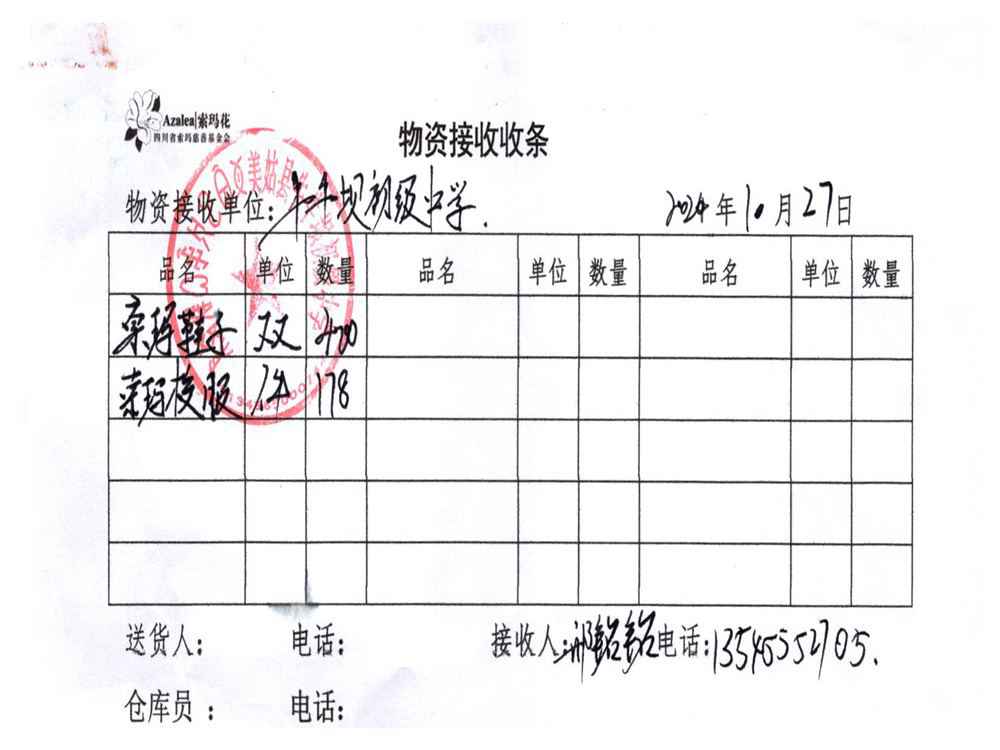 Azalea|索玛花
四川省索玛慈善基金会
物资接收收条
物资接收单位: 牛牛坝初级中学. 2024年10月27日
品名 单位 数量 品名 单位 数量 品名 单位 数量
索玛鞋子 双 400
索玛校服 件 178
送货人: 电话: 接收人: 电话: 13545552705.
仓库员: 电话:
美姑县